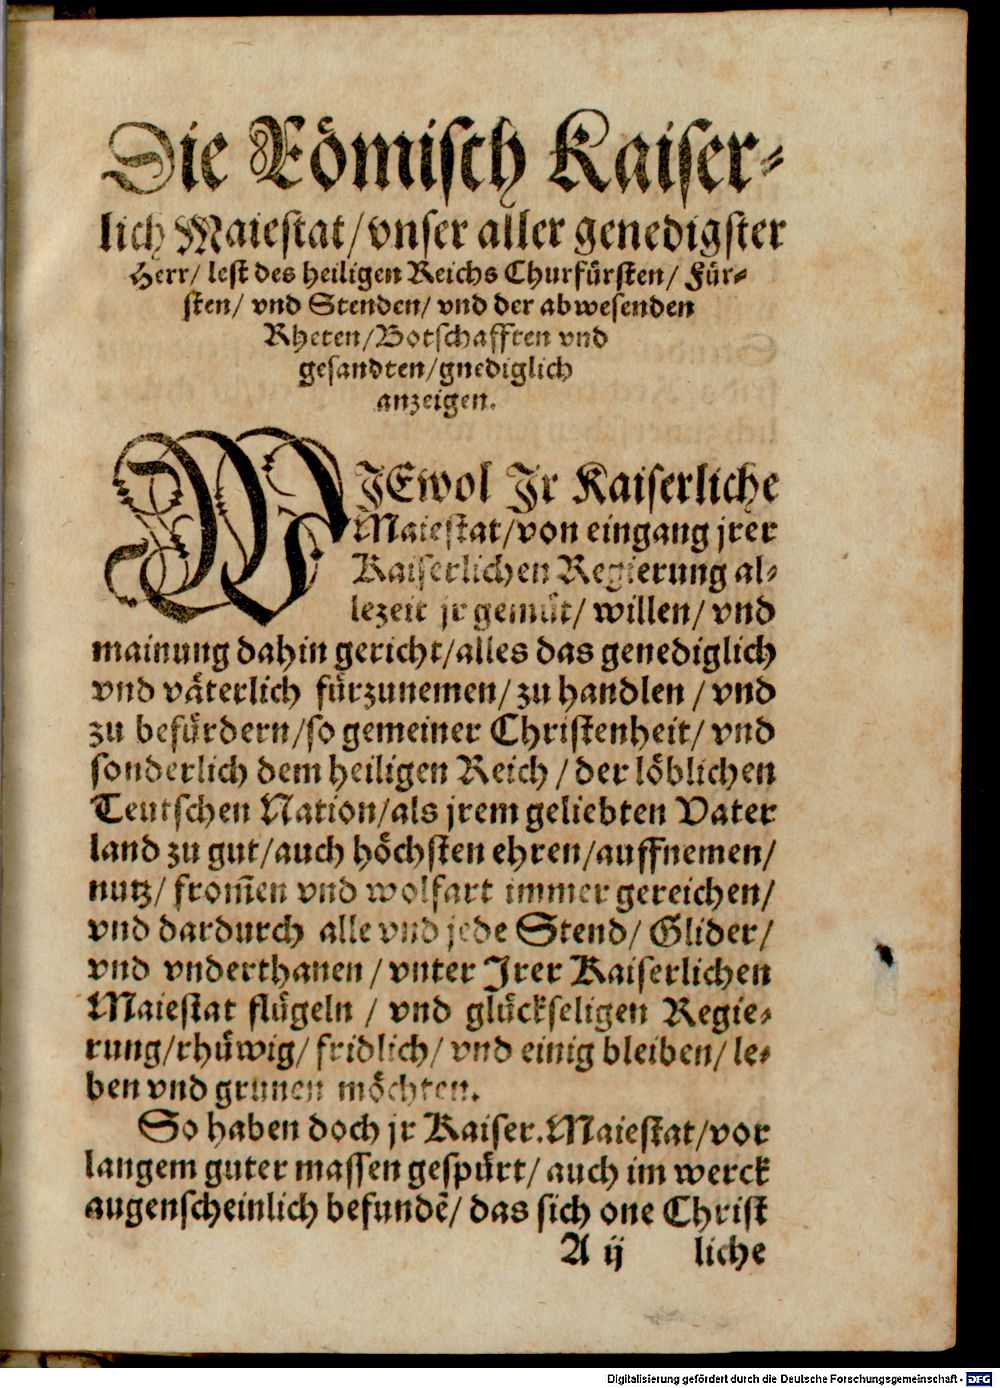 Die Römisch Kaiser⸗
lich Maiestat/vnser aller genedigster
Herr/ lest des heiligen Reichs Churfürsten/ Für⸗
sten/ vnd Stenden/ vnd der abwesenden
Rheten/Botschafften vnd
gesandten/gnediglich
anzeigen.
WJEwol Jr Kaiserliche
Maiestat/von eingang jrer
Kaiserlichen Regierung al⸗
lezeit jr gemüt/ willen/ vnd
mainung dahin gericht/alles das genediglich
vnd väterlich fürzunemen/ zu handlen / vnd
zu befürdern/so gemeiner Christenheit/ vnd
sonderlich dem heiligen Reich / der löblichen
Teutschen Nation/als jrem geliebten Vater
land zu gut/auch höchsten ehren/auffnemen/
nutz/ from̃en vnd wolfart immer gereichen/
vnd dardurch alle vnd jede Stend/ Glider/
vnd vnderthanen / vnter Jrer Kaiserlichen
Maiestat flügeln / vnd glückseligen Regie⸗
rung/rhüwig/ fridlich/ vnd einig bleiben/ le⸗
ben vnd grunen möchten.
So haben doch jr Kaiser.Maiestat/vor
langem guter massen gespürt/ auch im werck
augenscheinlich befundẽ/ das sich one Christ
A ij liche
Digitalisierung gefördert durch die Deutsche Forschungsgemeinschaft - DFG